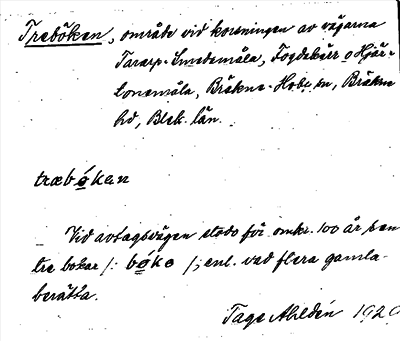 Treböken, område vid korsningen av vägarna
Tararp-Smedemåla, Fogdakärr o Hjär-
tonemåla, Bräkne-Hoby sn, Bräkne
hd, Blek. län.
træbóken
Vid avtagsvägen stodo för omkr. 100 år sen
tre bokar /: bóke /; enl. vad flera gamla
berätta.
Tage Ahldén 192